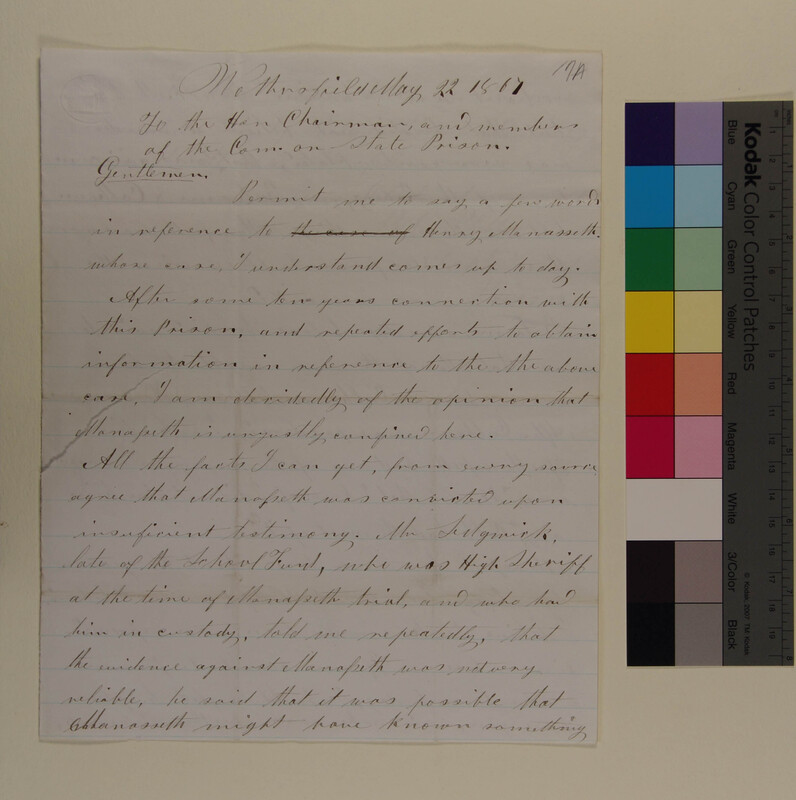 17A
Wethersfield May 22 1867
To the Hon Chairman, and members
of the Com on State Prison.
Gentlemen.
Permit me to say a few words
in reference to the case of Henry Manasseth.
whose case, I understand comes up to day.
After some ten years connection with
this Prison, and repeated efforts to obtain
information in reference to the the above
case, I am decidedly of the opinion that
Manasseth is unjustly confined here.
All the facts I can get, from every source
agree that Manasseth was convicted upon
insufficient testimony. Mr Sedgwick,
late of the School Fund, who was High Sheriff
at the time of Manasseth trial, and who had
him in custody, told me repeatedly, that
the evidence against Manasseth was not very
reliable, he said that it was possible that
Manasseth might have known something
Kodak Color Control Patches
Blue
Cyan
Green
Yellow
Red
Magenta
White
3/Color
Black
© Kodak, 2007 TM Kodak